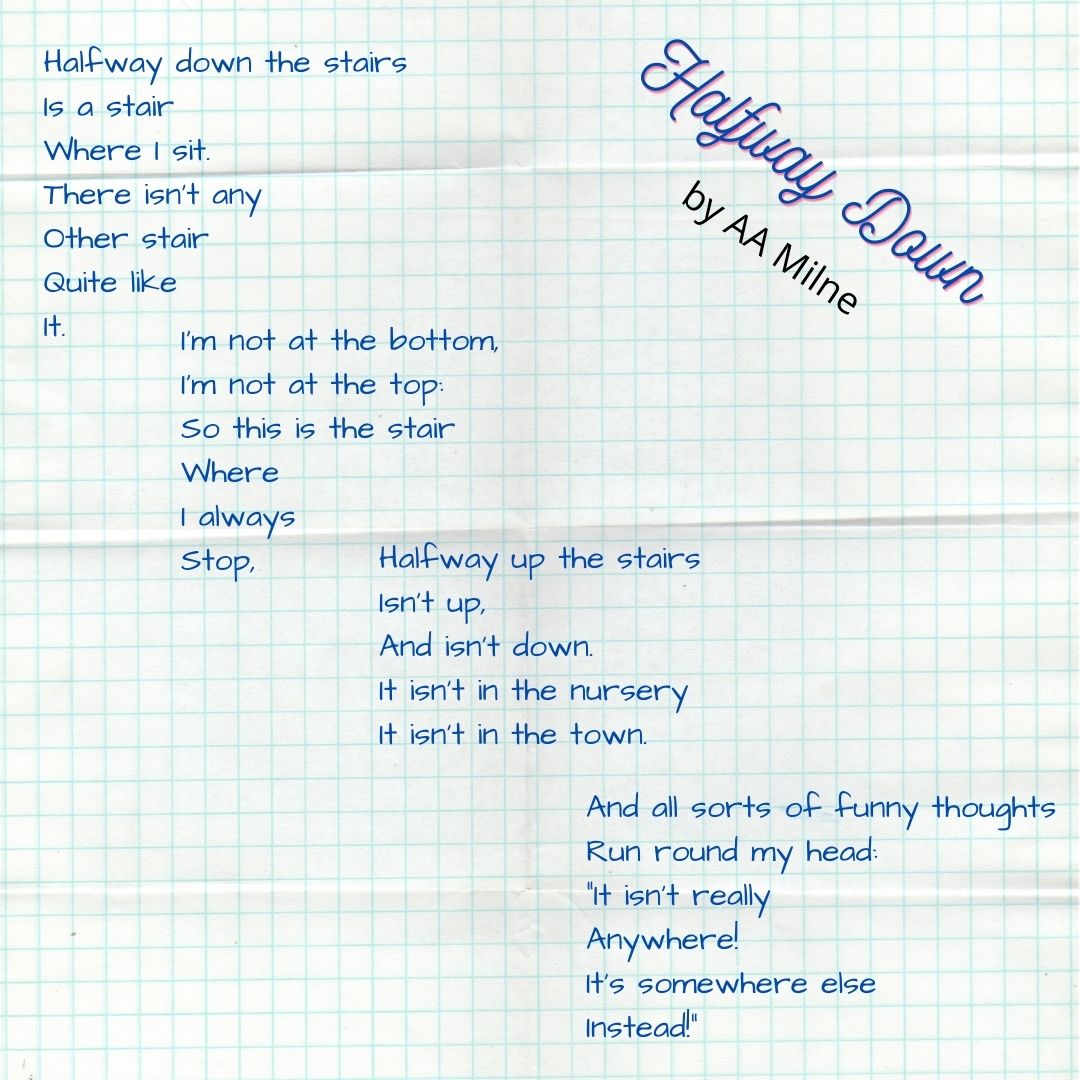 Halfway Down
by AA Milne
Halfway down the stairs
Is a stair
Where I sit.
There isn't any
Other stair
Quite like
It.
I'm not at the bottom,
I'm not at the top:
So this is the stair
Where
I always
Stop,
Halfway up the stairs
Isn't up,
And isn't down.
It isn't in the nursery
It isn't in the town.
And all sorts of funny thoughts
Run round my head:
"It isn't really
Anywhere!
It's somewhere else
Instead!"